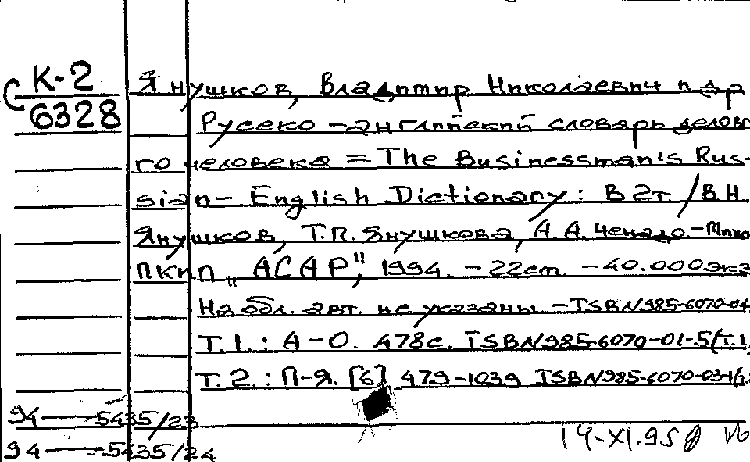 С К-2
6328
Янушков, Владимир Николаевич и др
Русско-английский словарь делово
го человека = The Businessman's Rus-
sian-English Dictionary: В 2т / В.Н.
Янушков, Т.П. Янушкова, А.А.
ПКИП "АСАР", 1994. - 22см. - 40.000экз
На обл. авт. не указаны. - ISBN 985-6070-04
Т.1.: А-О. 478с. ISBN 985-6070-01-5 (Т.1.
Т.2.: П-Я. [6] 479-1039 ISBN 985-6070-03-1
94-5435/23
94-5435/24
14-XI.95